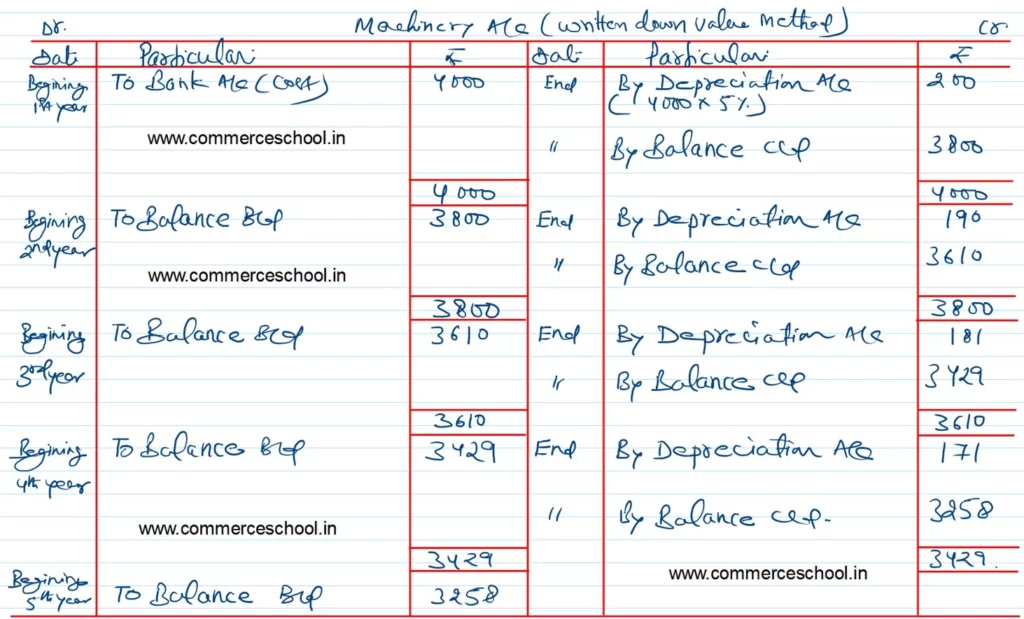 Dr. Machinery A/c (written down value method) Cr.
Date Particulars ₹ Date Particulars ₹
Begining 1st year To Bank A/c (Cost) 4000 End By Depreciation A/c 200
(4000 x 5%)
www.commerceschool.in
" By Balance c/d 3800
4000 4000
Begining 2nd year To Balance B/d 3800 End By Depreciation A/c 190
" By Balance c/d 3610
www.commerceschool.in
3800 3800
Begining 3rd year To Balance B/d 3610 End By Depreciation A/c 181
" By Balance c/d 3429
3610 3610
Begining 4th year To Balance B/d 3429 End By Depreciation A/c 171
" By Balance c/d. 3258
www.commerceschool.in
3429 3429.
www.commerceschool.in
Begining 5th year To Balance B/d 3258